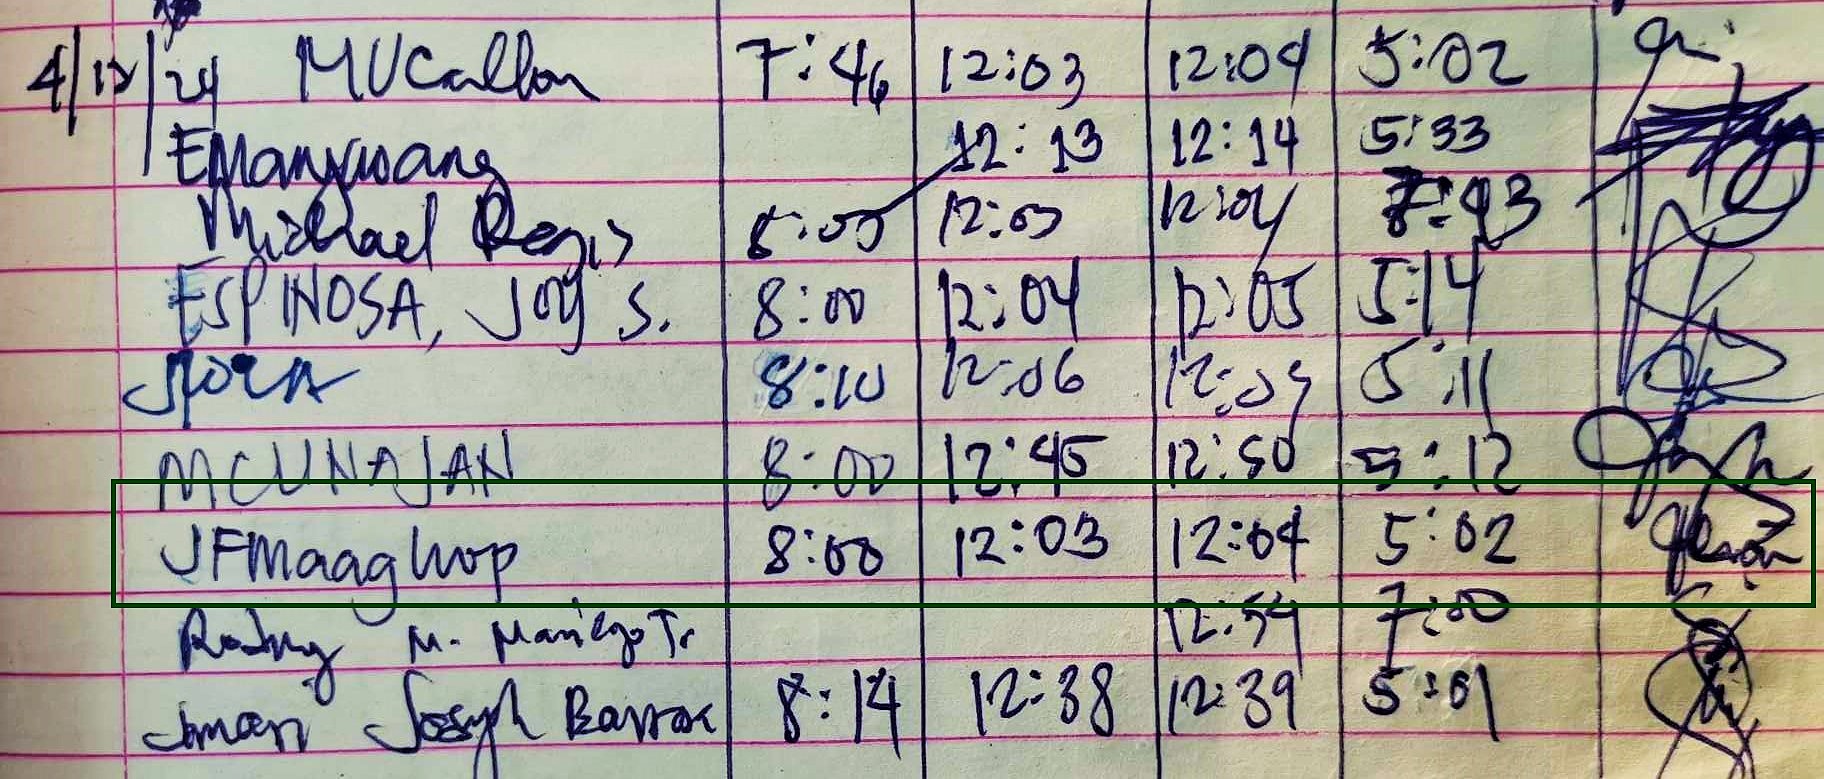 4/12/24 MVCallon 7:46 12:03 12:04 5:02
EManxwang 12:13 12:14 5:33
Michael Regis 8:00 12:03 12:04 7:43
ESPINOSA, JOY S. 8:00 12:04 12:05 5:14
8:10 12:06 12:09 5:11
MCUNAJAN 8:00 12:45 12:50 5:12
JFMaaghop 8:00 12:03 12:04 5:02
Rodny M. Maniego Jr. 12:59 7:00
Joseph 8:14 12:38 12:39 5:01